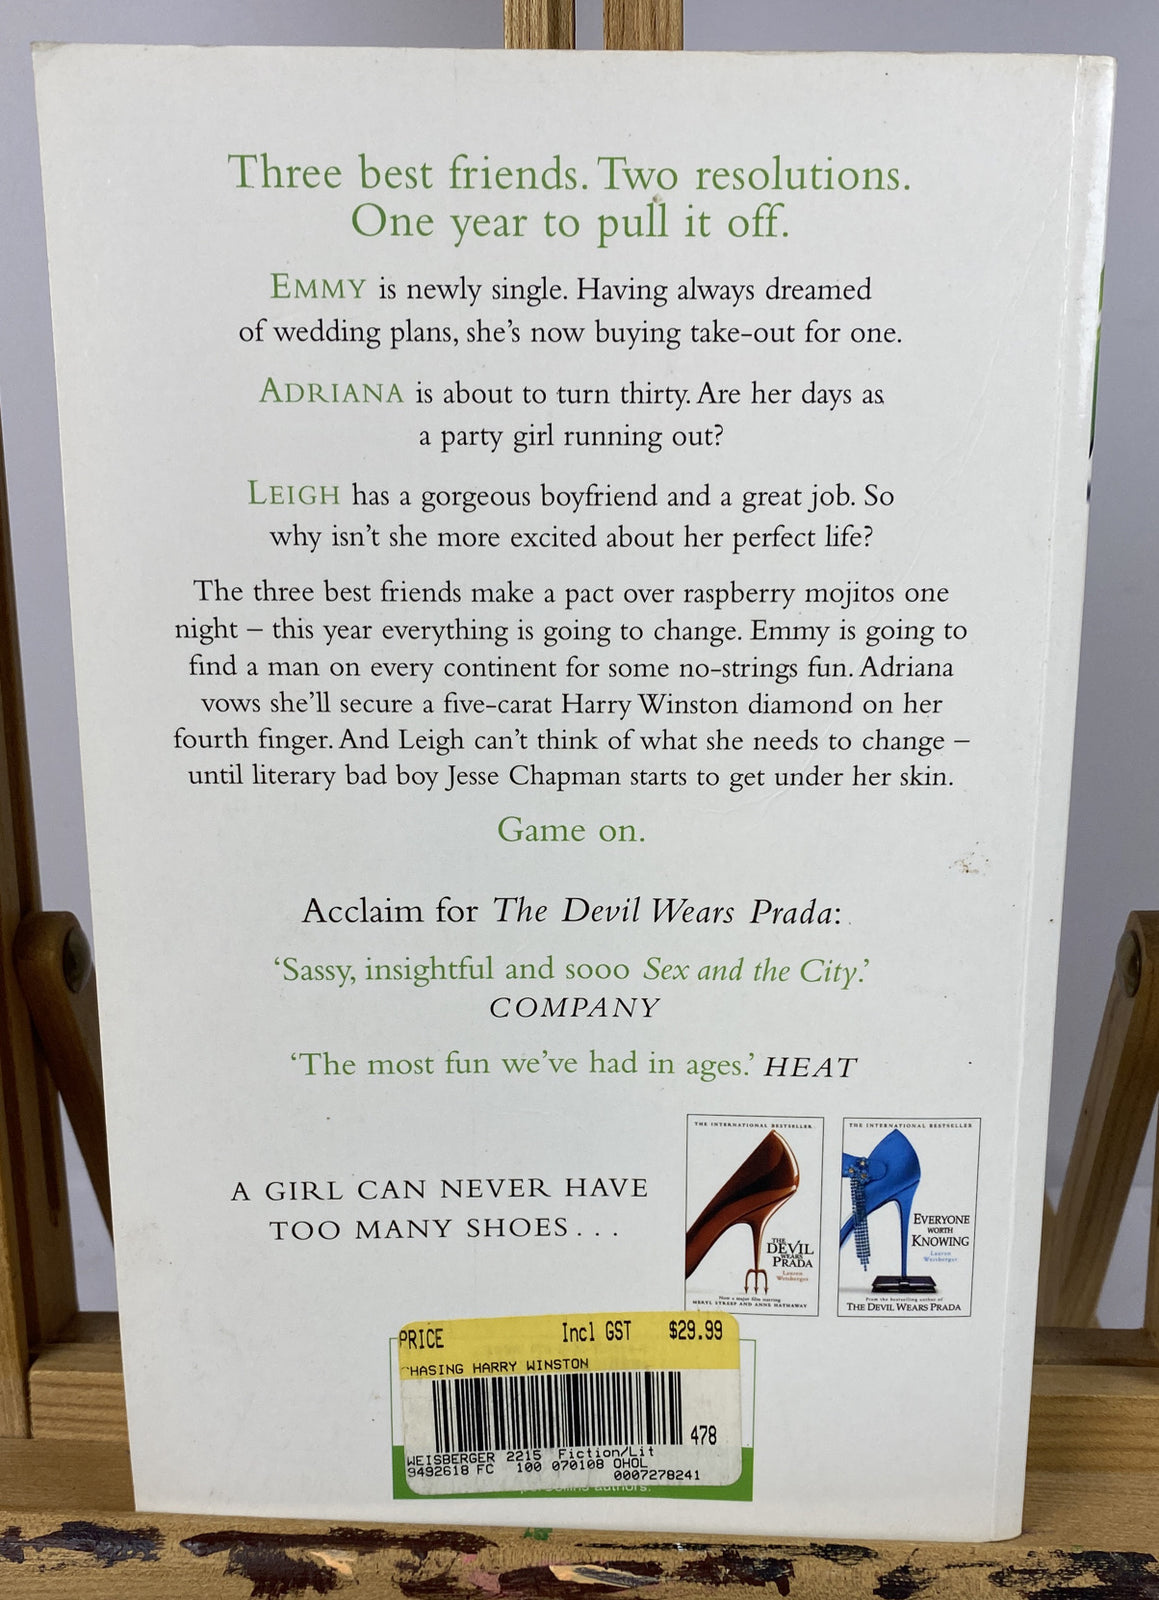 Three best friends. Two resolutions.
One year to pull it off.
EMMY is newly single. Having always dreamed
of wedding plans, she's now buying take-out for one.
ADRIANA is about to turn thirty. Are her days as
a party girl running out?
LEIGH has a gorgeous boyfriend and a great job. So
why isn't she more excited about her perfect life?
The three best friends make a pact over raspberry mojitos one
night – this year everything is going to change. Emmy is going to
find a man on every continent for some no-strings fun. Adriana
vows she'll secure a five-carat Harry Winston diamond on her
fourth finger. And Leigh can't think of what she needs to change –
until literary bad boy Jesse Chapman starts to get under her skin.
Game on.
Acclaim for The Devil Wears Prada:
'Sassy, insightful and sooo Sex and the City.'
COMPANY
'The most fun we've had in ages.' HEAT
A GIRL CAN NEVER HAVE
TOO MANY SHOES . . .
THE INTERNATIONAL BESTSELLER
THE
DEVIL
WEARS
PRADA
Lauren
Weisberger
Now a major film starring
MERYL STREEP AND ANNE HATHAWAY
THE INTERNATIONAL BESTSELLER
EVERYONE
WORTH
KNOWING
Lauren
Weisberger
From the bestselling author of
THE DEVIL WEARS PRADA
PRICE Incl GST $29.99
HASING HARRY WINSTON
478
WEISBERGER 2215 Fiction/Lit
9492618 FC 100 070108 OHOL
0007278241
authors.